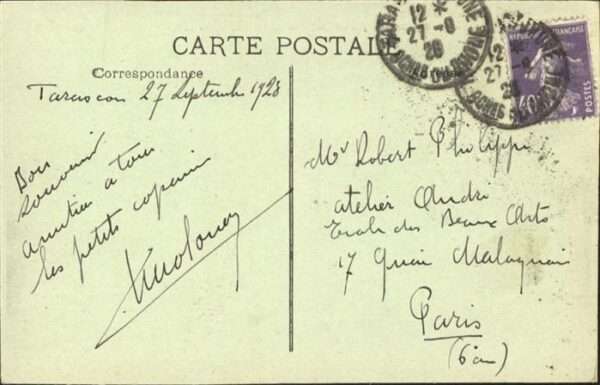 CARTE POSTALE
Correspondance
Tarascon 27 Septembre 1928
Bon
souvenir
amitiés à tous
les petits copains
Mr Robert Philippe
atelier André
Ecole des Beaux Arts
17 Quai Malaquais
Paris
(6em)
12 *
27 - 9
28
12 *
27
BOUCHES DU RHONE
REPUBLIQUE FRANÇAISE
40
POSTES